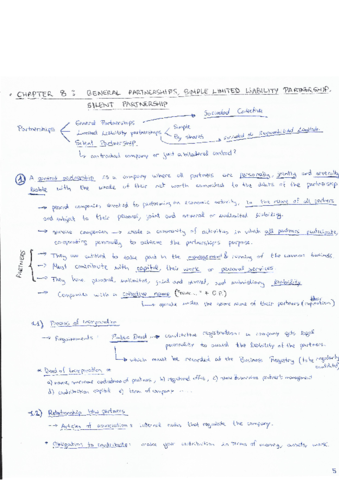 • CHAPTER 8: GENERAL PARTNERSHIPS, SIMPLE LIMITED LIABILITY PARTNERSHIP.
SILENT PARTNERSHIP
Sociedad Colectiva
Partnerships
General Partnerships
Limited Liability partnerships
Simple
By shares
Silent Partnership
↳ contractual company or just a bilateral contract?
① A general partnership is a company where all partners are personally, jointly and severally
liable with the whole of their net worth committed to the debts of the partnership
→ personal companies devoted to performing an economic activity, in the name of all partners
and subject to their personal, joint and several or unlimited liability.
→ companies → create a community of activities in which all partners participate
co-operating personally to achieve the partnership's purpose.
PARTNERS
→ They are entitled to take part in the management & running of the business
→ Must contribute with capital, their work or personal services
→ They have personal, unlimited, joint and several, and subsidiary liability
→ Companies with a collective name
→ operate under the name of their partners (reputation)
1.1) Process of incorporation
→ Requirements:
Public Deed → constitutive registration: company gets legal
personality to avoid the liability of the partners.
→ which must be recorded at the Business Registry
= Deed of incorporation =
a) name, surname and of partners, b) registered office, c) partner's management
d) contribution capital e)
1.2) Relationship btw partners
→ Articles of association: internal rules that regulate the company.
* Obligation to contribute: make your contribution in terms of money, assets, work.
5